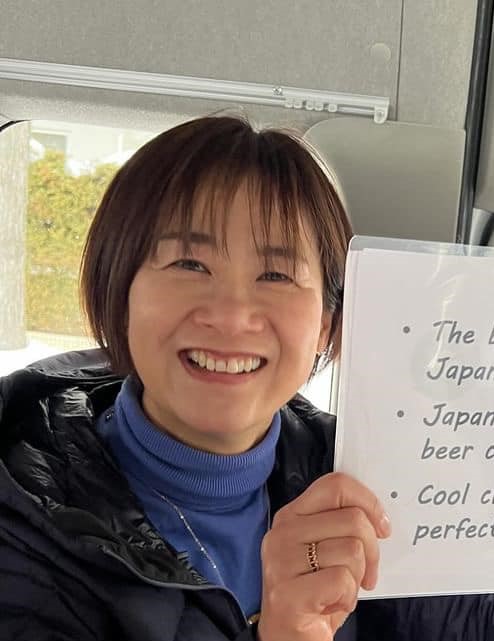 • The
Japan
• Japan
beer
• Cool
perfect